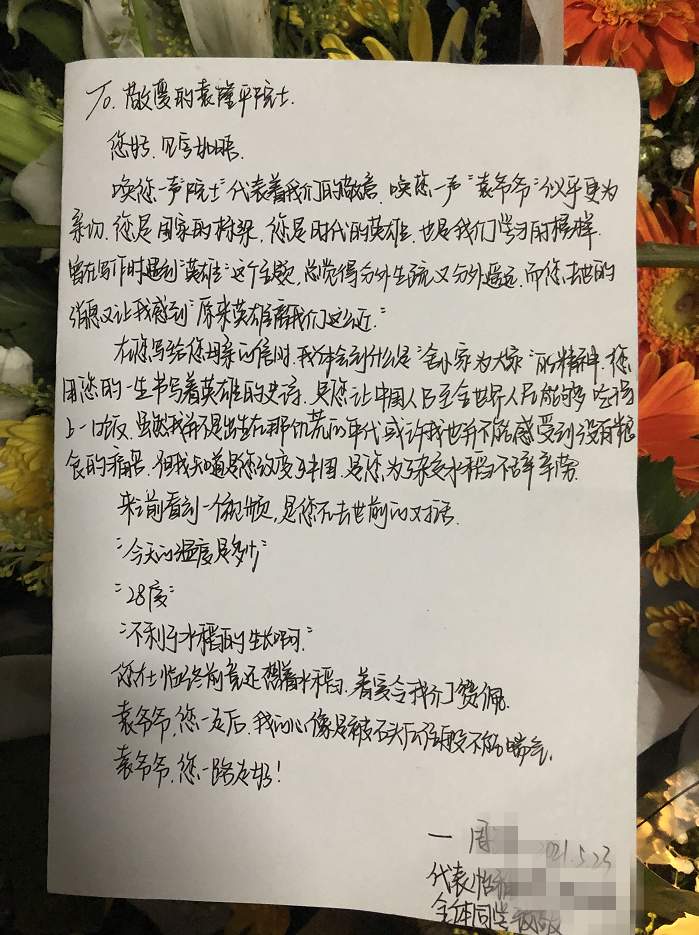 To. 敬爱的袁隆平院士.
您好, 见字如晤.
唤您一声“院士”代表着我们的敬意, 唤您一声“袁爷爷”似乎更为
亲切. 您是国家的栋梁, 您是时代的英雄, 也是我们学习的榜样.
曾在写作时遇到“英雄”这个主题, 总觉得分外生疏又分外遥远. 而您去世的
消息又让我感到“原来英雄离我们这么近.”
在您写给您母亲的信时, 我体会到什么是“舍小家为大家”的精神. 您
用您的一生书写着英雄的史诗. 是您让中国人乃至全世界人民能够吃得
上一口饭. 虽然我并不是出生在那饥荒的年代 或许我也并不能感受到没有粮
食的痛苦. 但我知道是您改变了中国, 是您为了杂交水稻不辞辛劳.
来之前看到一个视频, 是您在去世前的对话.
“今天的温度是多少”
“28度”
“不利于水稻的生长啊.”
您在临终前竟还想着水稻, 着实令我们敬佩.
袁爷爷, 您一走后, 我们的心像是被石头压住般不能喘气.
袁爷爷, 您一路走好!
一 周 2021.5.23
代表
全体同学